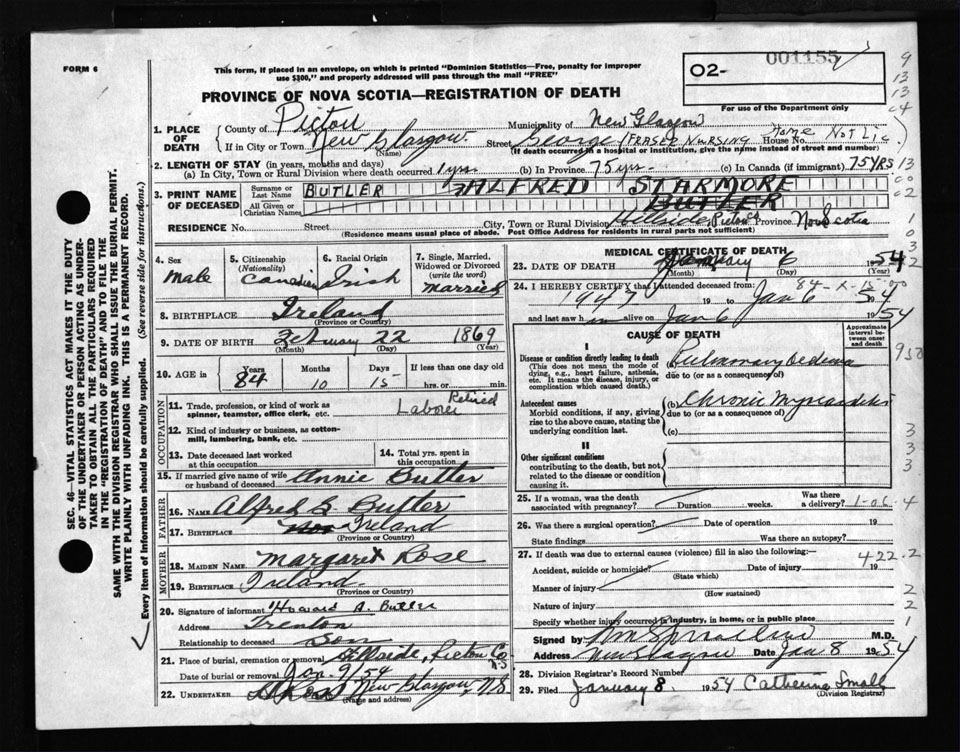 FORM 6
This form, if placed in an envelope, on which is printed "Dominion Statistics—Free, penalty for improper
use $300," and properly addressed will pass through the mail "FREE"
PROVINCE OF NOVA SCOTIA—REGISTRATION OF DEATH
O2-
001155
For use of the Department only
1. PLACE OF DEATH
County of Pictou Municipality of New Glasgow
If in City or Town New Glasgow (Name) Street George (FRASER NURSING House No. Home Not Lic)
(If death occurred in a hospital or institution, give the name instead of street and number)
2. LENGTH OF STAY (in years, months and days)
(a) In City, Town or Rural Division where death occurred 1 yrs (b) In Province 75 yrs (c) In Canada (if immigrant) 75 YRS
3. PRINT NAME OF DECEASED
Surname or Last Name BUTLER ALFRED STARMORE
All Given or Christian Names BUTLER
RESIDENCE No. Street City, Town or Rural Division Hillside, Pictou Province Nova Scotia
(Residence means usual place of abode. Post Office Address for residents in rural parts not sufficient)
4. Sex
male
5. Citizenship (Nationality)
Canadian
6. Racial Origin
Irish
7. Single, Married, Widowed or Divorced (write the word)
married
8. BIRTHPLACE Ireland
(Province or Country)
9. DATE OF BIRTH February 22 1869
(Month) (Day) (Year)
10. AGE in Years 84 Months 10 Days 15 If less than one day old
hrs. or min.
OCCUPATION
11. Trade, profession, or kind of work as spinner, teamster, office clerk, etc. Laborer Retired
12. Kind of industry or business, as cotton-mill, lumbering, bank, etc.
13. Date deceased last worked at this occupation
14. Total yrs. spent in this occupation
15. If married give name of wife or husband of deceased Annie Butler
FATHER
16. NAME Alfred S Butler
17. BIRTHPLACE Ireland
(Province or Country)
MOTHER
18. MAIDEN NAME Margaret Rose
19. BIRTHPLACE Ireland
(Province or Country)
20. Signature of informant Howard A. Butler
Address Trenton
Relationship to deceased Son
21. Place of burial, cremation or removal Hillside, Pictou Co NS
Date of burial or removal Jan. 9. 54
22. UNDERTAKER New Glasgow, N.S.
(Name and address)
MEDICAL CERTIFICATE OF DEATH
23. DATE OF DEATH January 6 1954
(Month) (Day) (Year)
84-X-15-00
24. I HEREBY CERTIFY that I attended deceased from:
1947 19 to Jan 6 1954
and last saw h im alive on Jan 6 1954
CAUSE OF DEATH
Approximate interval between onset and death
I
Disease or condition directly leading to death
(This does not mean the mode of dying, e.g., heart failure, asthenia, etc. It means the disease, injury, or complication which caused death.)
(a) Pulmonary Oedema
due to (or as a consequence of)
Antecedent causes
Morbid conditions, if any, giving rise to the above cause, stating the underlying condition last.
(b) Chronic Myocarditis
due to (or as a consequence of)
(c)
II
Other significant conditions
contributing to the death, but not related to the disease or condition causing it.
25. If a woman, was the death associated with pregnancy? Duration weeks. Was there a delivery?
26. Was there a surgical operation? Date of operation 19
State findings Was there an autopsy?
27. If death was due to external causes (violence) fill in also the following:
Accident, suicide or homicide? Date of injury 19
(State which)
422.2
Manner of injury
(How sustained)
Nature of injury
Specify whether injury occurred in industry, in home, or in public place
Signed by M.D.
Address New Glasgow Date Jan 8 1954
28. Division Registrar's Record Number
29. Filed January 8 1954 Catherine Small
(Division Registrar)
SEC. 46—VITAL STATISTICS ACT MAKES IT THE DUTY
OF THE UNDERTAKER OR PERSON ACTING AS UNDER-
TAKER TO OBTAIN ALL THE PARTICULARS REQUIRED
IN THE "REGISTRATION OF DEATH" AND TO FILE THE
SAME WITH THE DIVISION REGISTRAR WHO SHALL ISSUE THE BURIAL PERMIT.
WRITE PLAINLY WITH UNFADING INK. THIS IS A PERMANENT RECORD.
Every item of information should be carefully supplied. (See reverse side for instructions.)